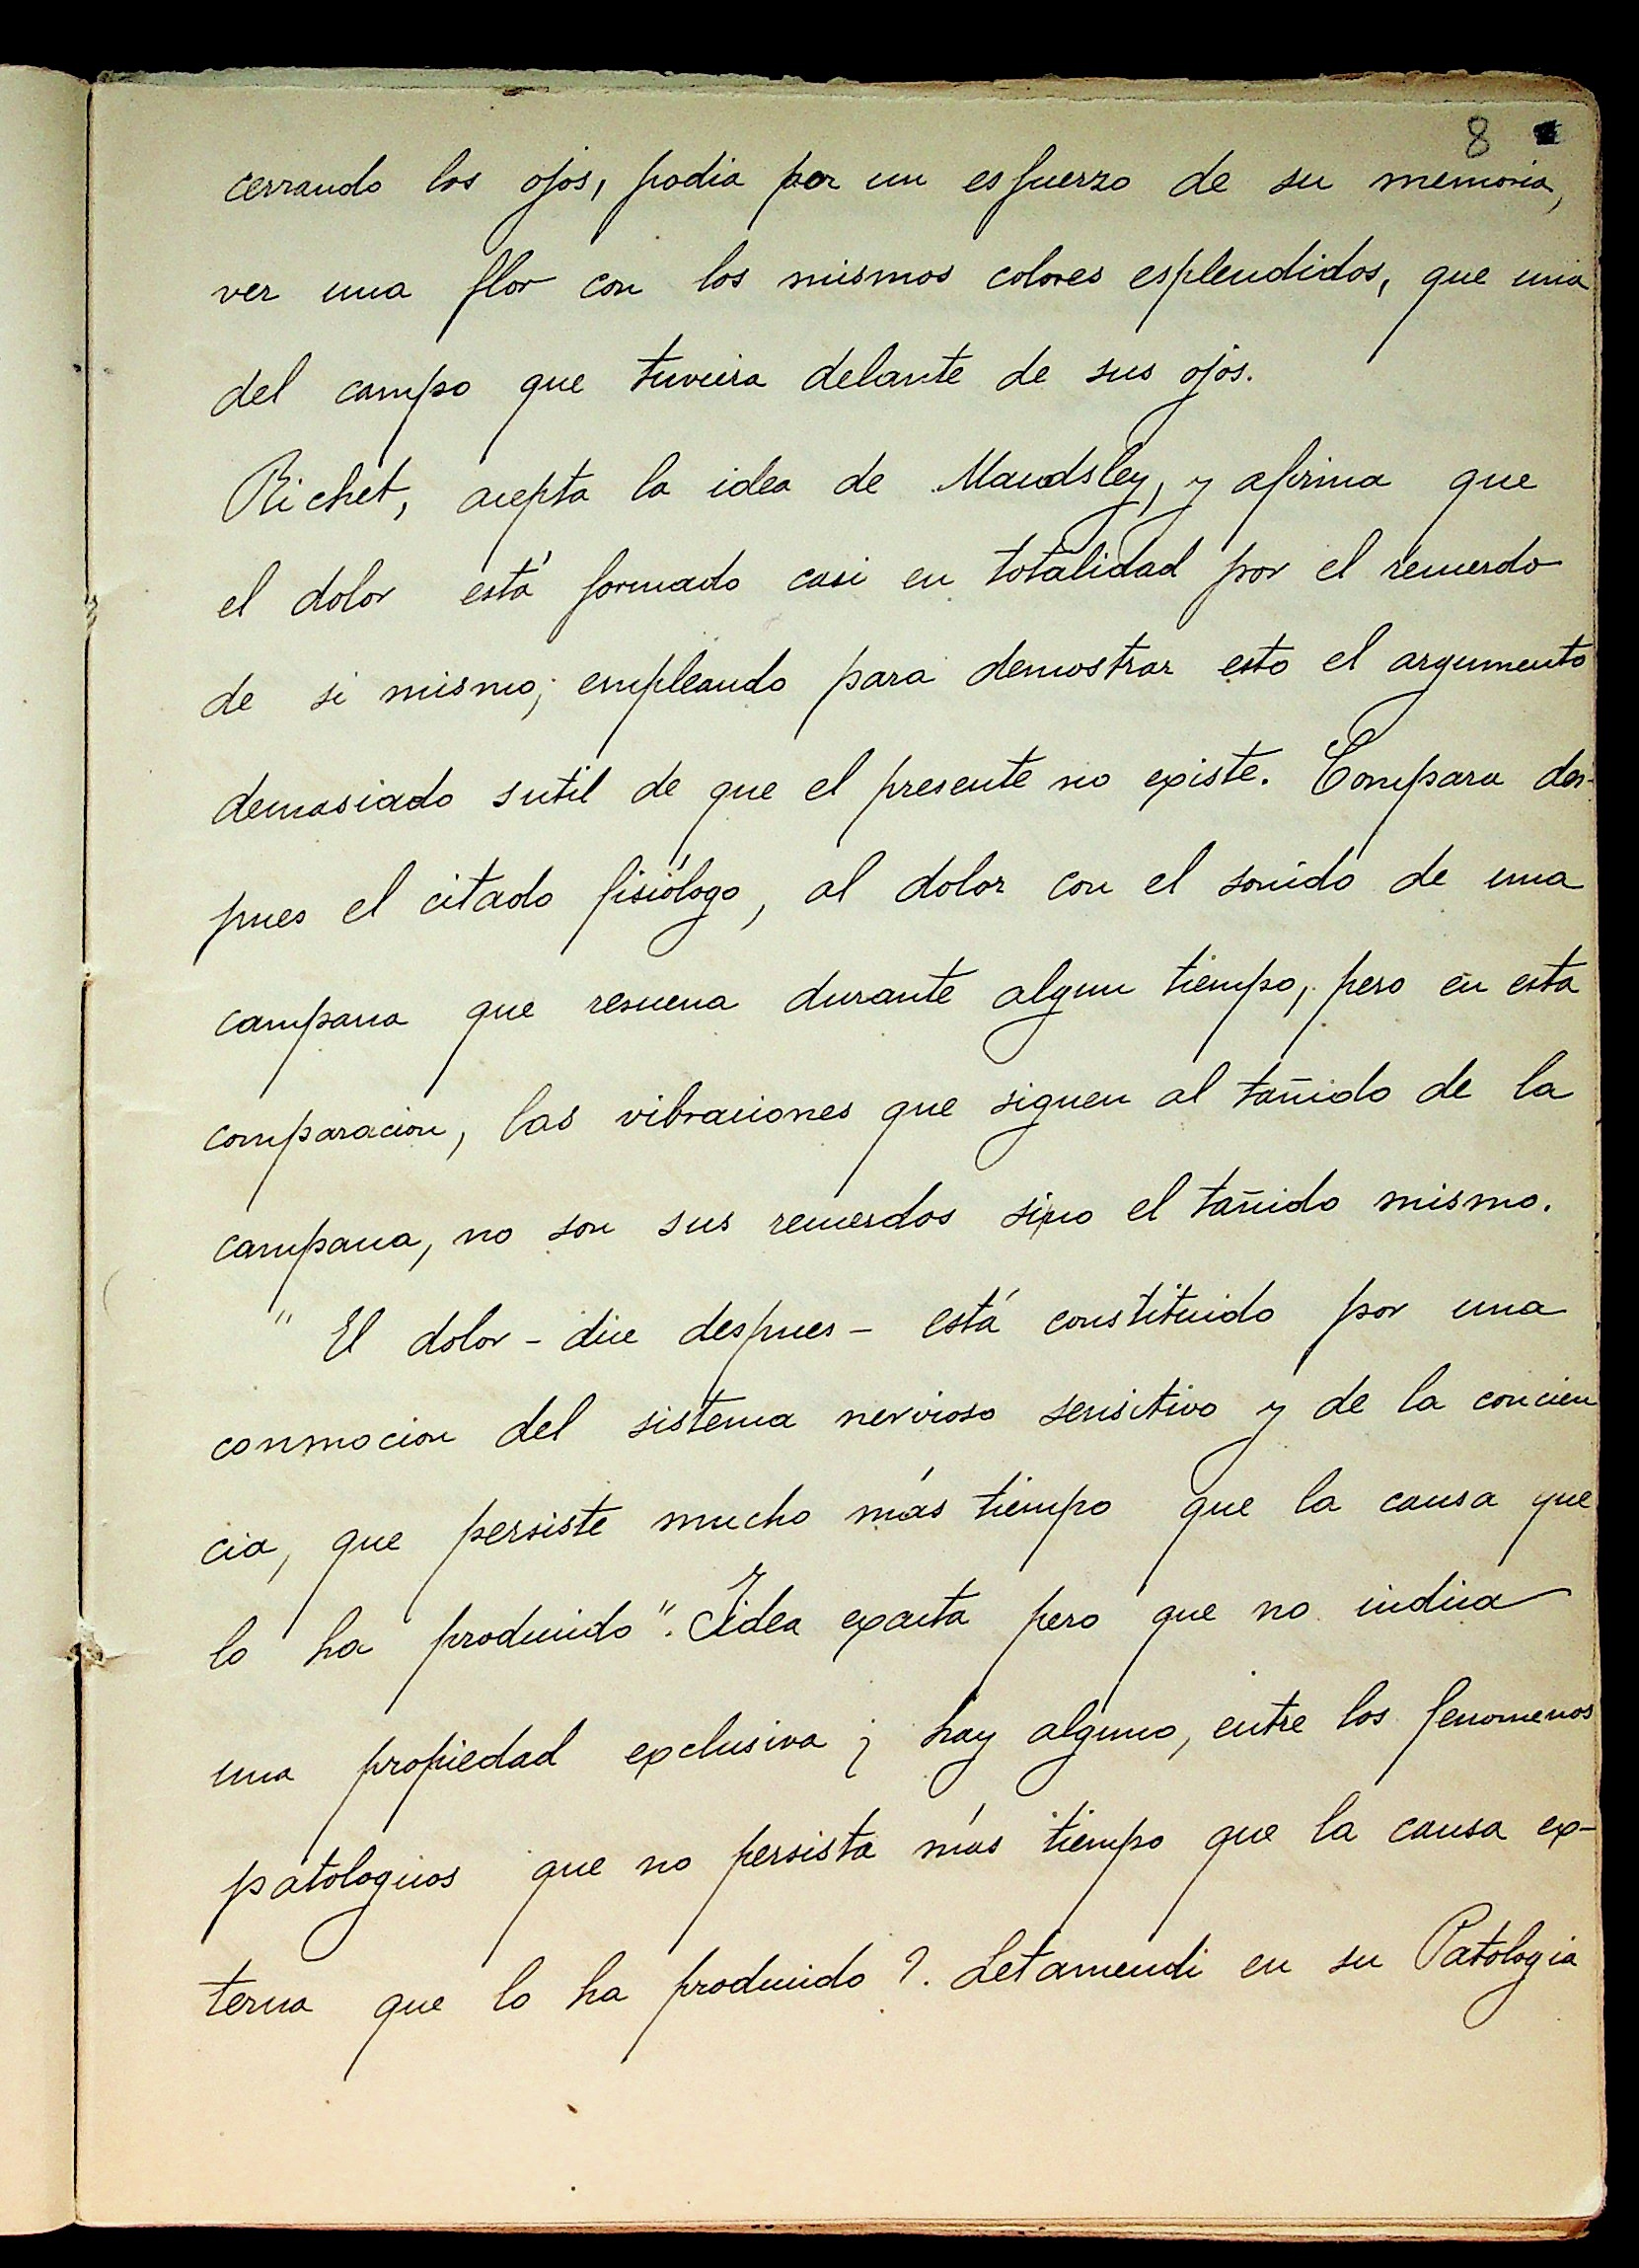 8
cerrando los ojos, podia por un esfuerzo de su memoria,
ver una flor con los mismos colores esplendidos, que una
del campo que tuviera delante de sus ojos.
Richet, acepta la idea de Maudsley, y afirma que
el dolor está formado casi en totalidad por el recuerdo
de si mismo; empleando para demostrar esto el argumento
demasiado sutil de que el presente no existe. Compara des-
pues el citado fisiólogo, al dolor con el sonido de una
campana que resuena durante algun tiempo, pero en esta
comparacion, las vibraciones que siguen al tañido de la
campana, no son sus recuerdos sino el tañido mismo.
" El dolor - dice despues - está constituido por una
conmocion del sistema nervioso sensitivo y de la concien
cia, que persiste mucho más tiempo que la causa que
lo ha producido". Idea exacta pero que no indica
una propiedad exclusiva ¿ hay alguno, entre los fenomenos
patologicos que no persista más tiempo que la causa ex-
terna que lo ha producido ?. Letamendi en su Patologia